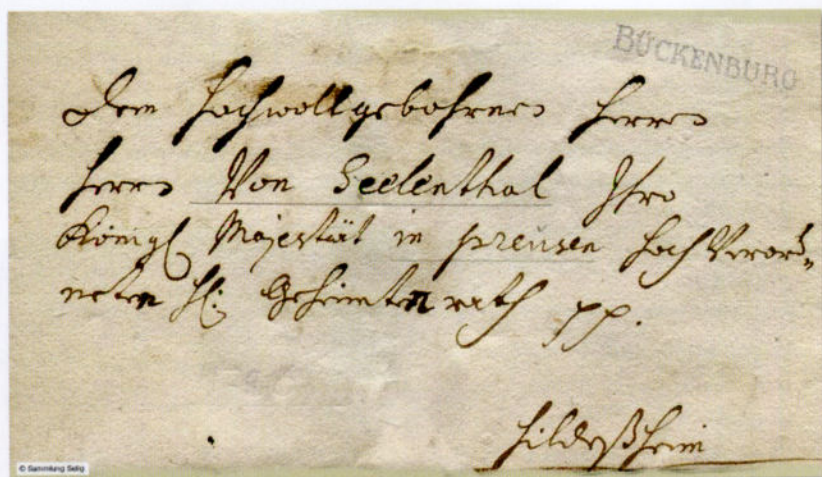 BÜCKENBURG
Dem Hochwollgebohrnen Herren
Herrn Von Seelenthal Ihro
Königl Majestät in preusen Hoch Verord=
neten H: Geheimten rath pp.
Hildeßheim
© Sammlung Selig